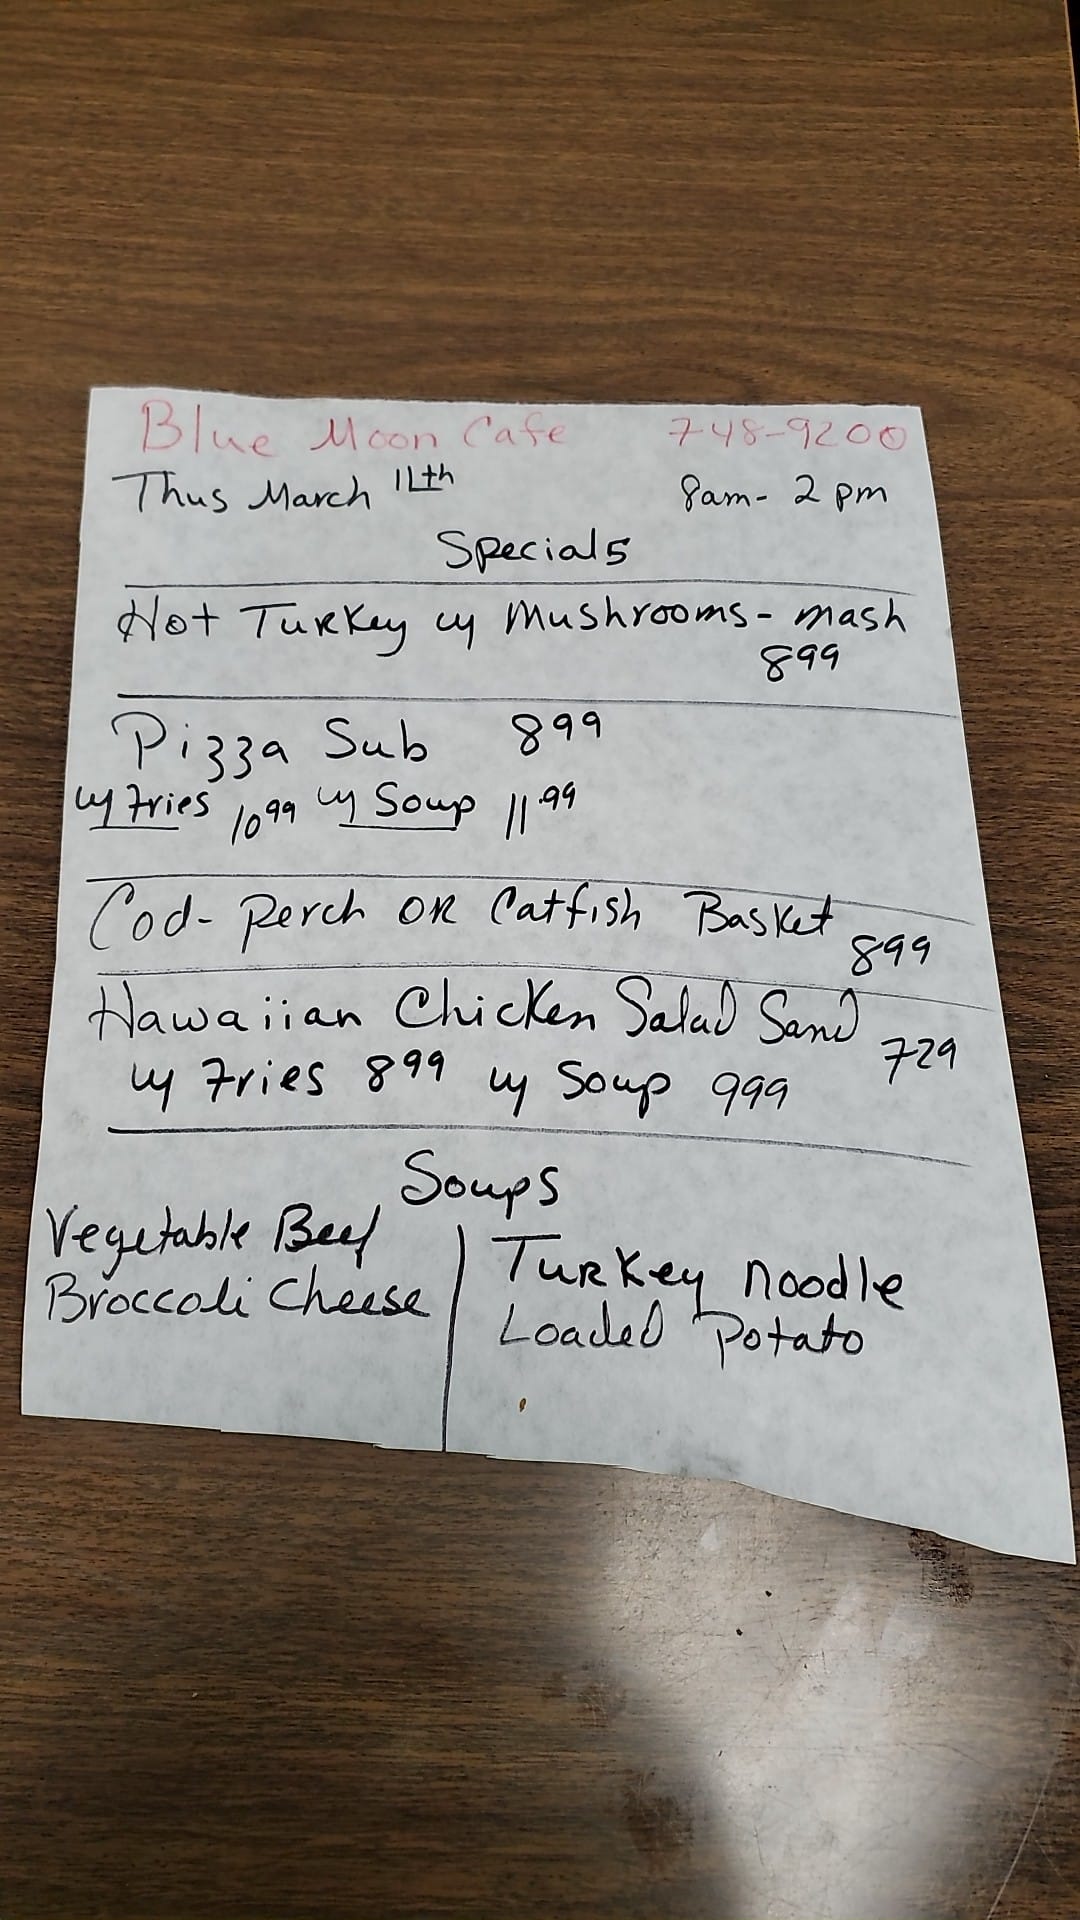 Blue Moon Cafe 748-9200
Thus March 11th 8am- 2 pm
Specials
Hot Turkey w/ Mushrooms- mash
899
Pizza Sub 899
w/ Fries 10 99 w/ Soup 11.99
Cod- Perch OR Catfish Basket
899
Hawaiian Chicken Salad Sand
729
w/ Fries 899 w/ Soup 999
Soups
Vegetable Beef
Broccoli Cheese
Turkey noodle
Loaded Potato